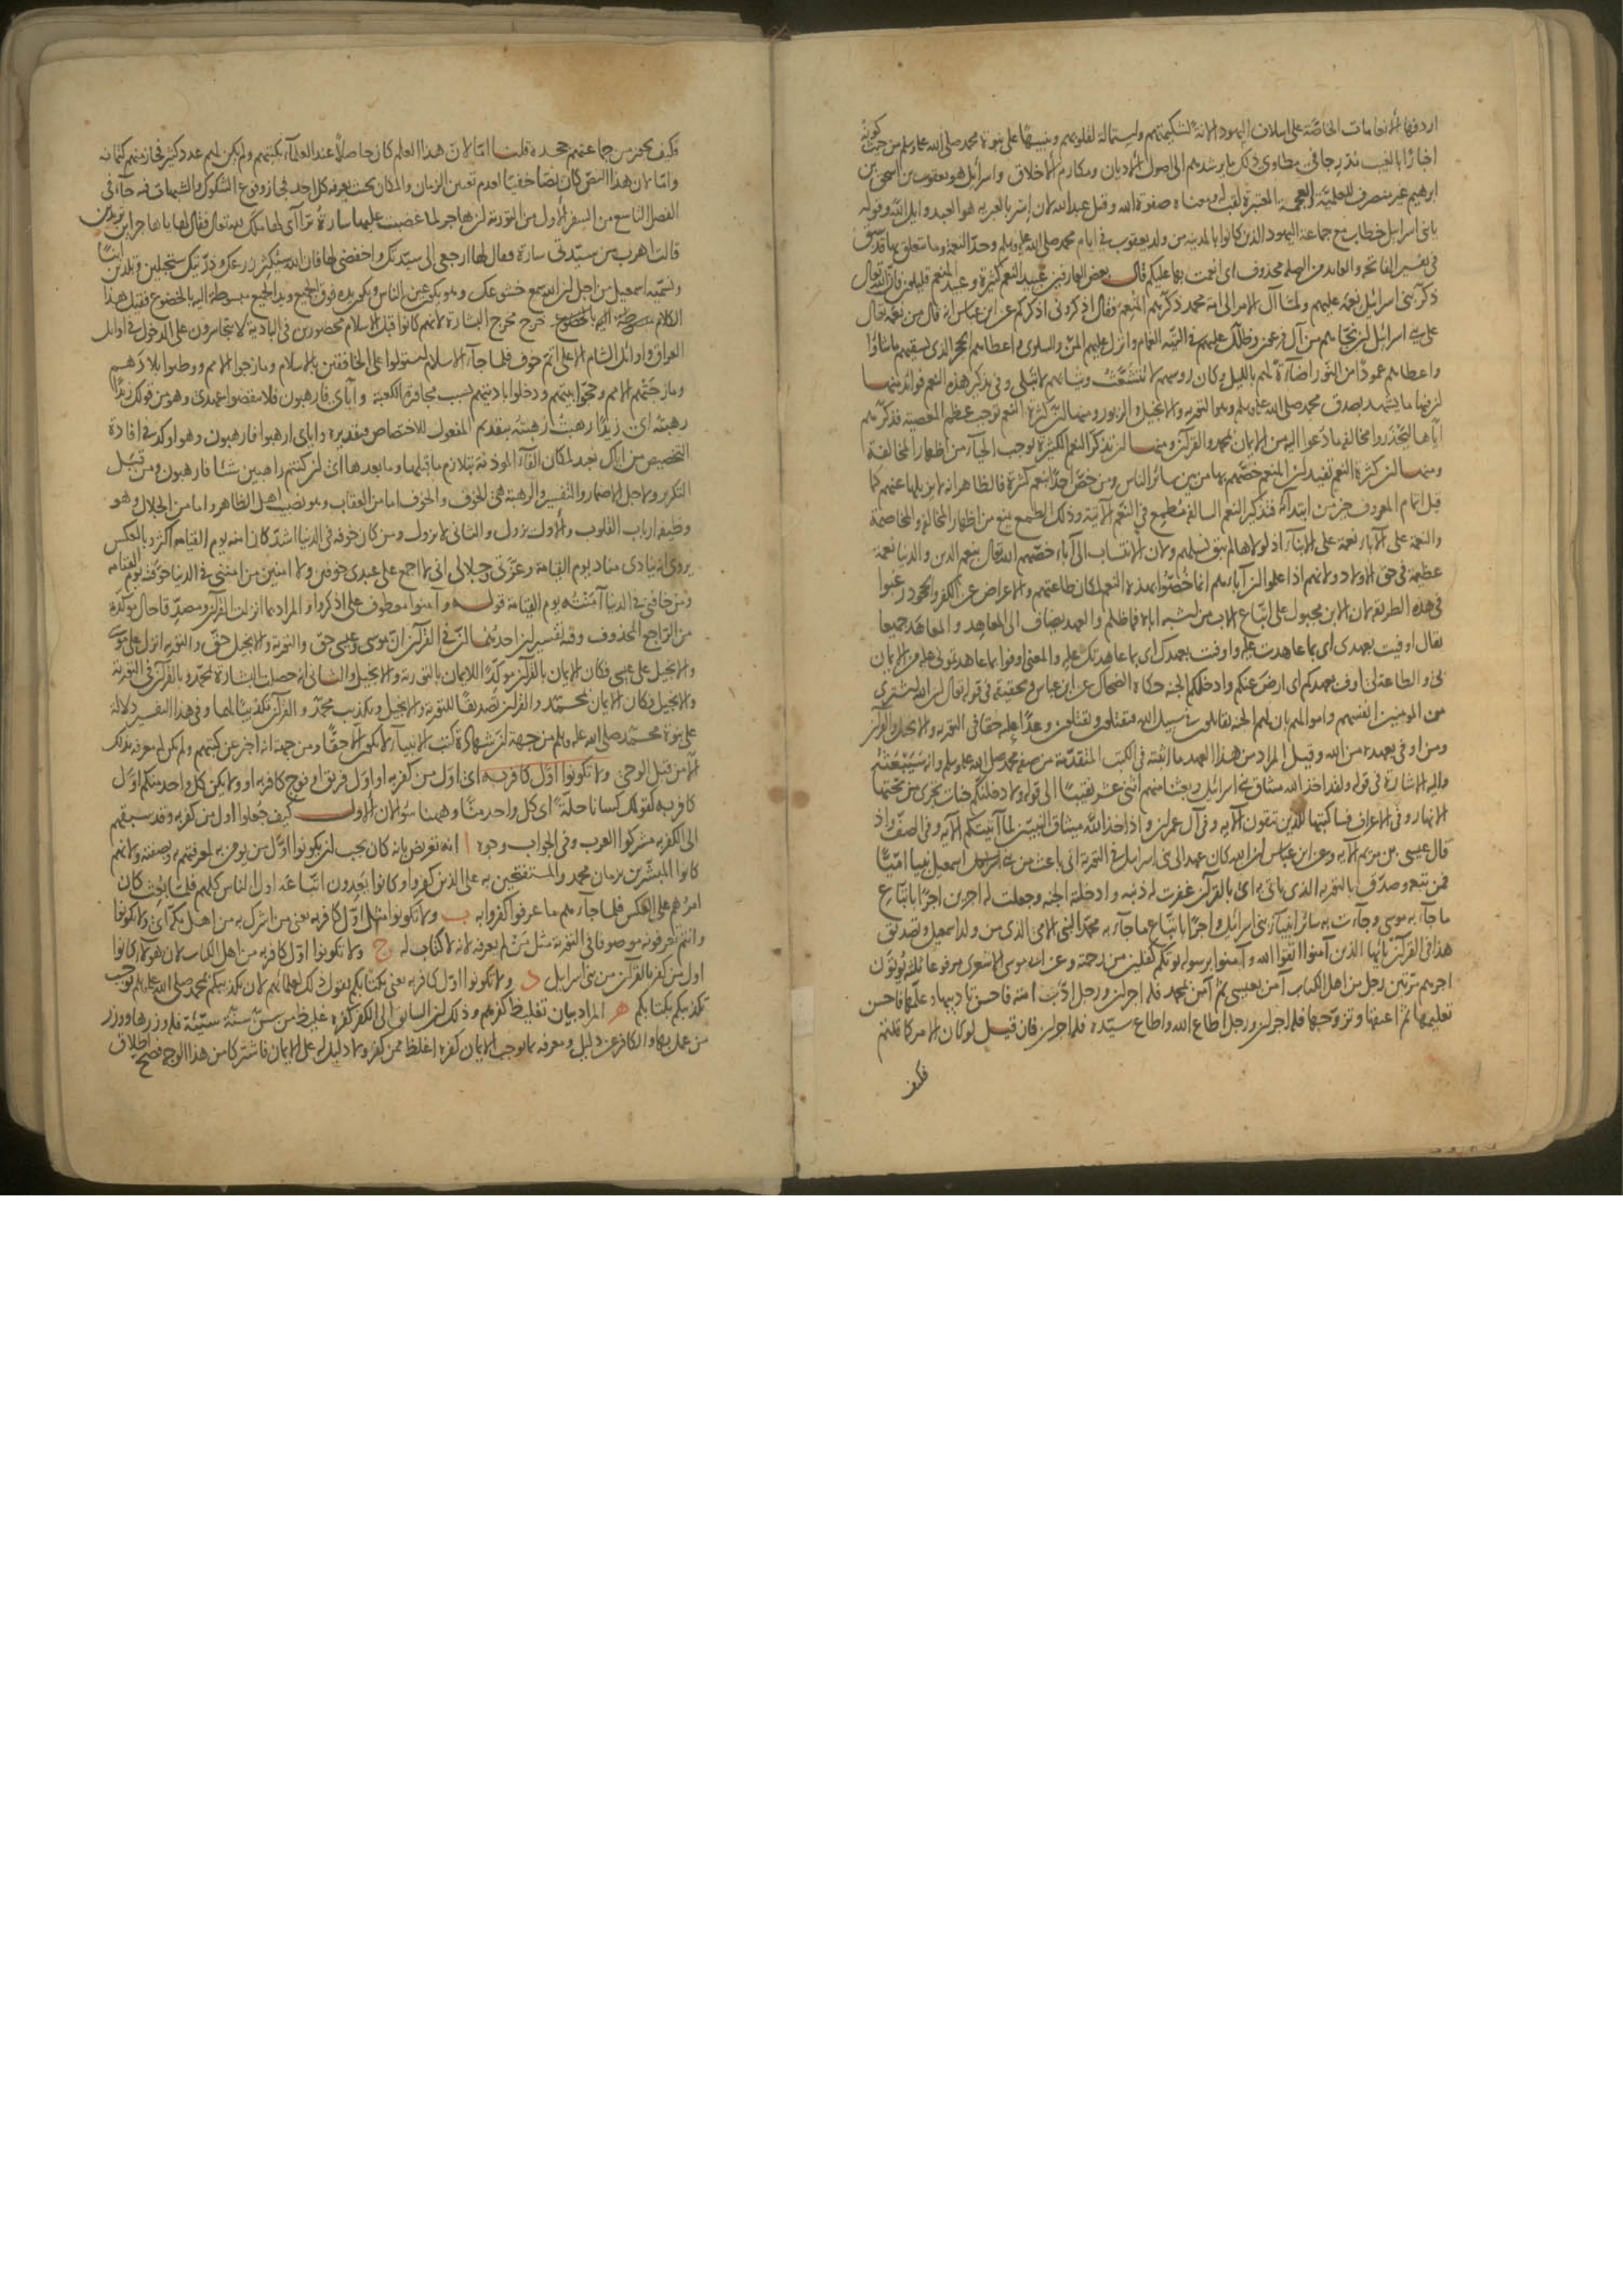 اردفها الانعامات الخاصة على اسلاف اليهود الانة لشكيمتهم واستمالة لقلوبهم وتنبيها على نبوة محمد صلى الله عليه وسلم من حيث كونه
اخبارا بالغيب تدرجا في مطاوي ذلك بما يرشدهم الى اصول الاديان ومكارم الاخلاق واسرائل هو يعقوب بن اسحق بن
ابرهيم غير منصرف للعلمية والعجمة المعتبرة لقب له ومعناه صفوة الله وقيل عبد الله لان اسر بالعبرية هو العبد وايل الله وقوله
يا بني اسرايل خطاب مع جماعة اليهود الذين كانوا بالمدينة من ولد يعقوب في ايام محمد صلى الله عليه وسلم وحد النعمة وما يتعلق بها قد سبق
في تفسير الفاتحة والعايد من الصلة محذوف اى انعمت بها عليكم قال بعض العارفين عبيد النعم كثيرة وعبيد المنعم قليلون فان الله تعالى
ذكر بني اسرائل نعمه عليهم ولما آل الامر الى امة محمد ذكرهم المنعم فقال اذكروني اذكركم عن ابن عباس انه قال من نعمه تعالى
على بني اسرائل ان نجاهم من آل فرعون وظلل عليهم في التيه الغمام وانزل عليهم المن والسلوى واعطاهم الحجر الذى يسقيهم ما شاؤا
واعطاهم عمودا من النور اضاءة لهم بالليل وكان روسهم لا تتشعث وثيابهم لا تبلى وفي تذكير هذه النعم فوائد منها
ان فيها ما يشهد بصدق محمد صلى الله عليه وسلم وهو التورية والانجيل والزبور ومنها ان كثرة النعم توجب عظم المعصية فذكرهم
اياها ليحذروا مخالفة ما دعوا اليه من الايمان بمحمد والقرآن ومنها ان تذكر النعم الكثيرة يوجب الحياء من اظهار المخالفة
ومنها ان كثرة النعم تفيد ان المنعم خصهم بها من بين سائر الناس ومن خص احدا بنعم كثيرة فالظاهر انه لا يزيلها عنهم كما
قيل اتمام المعروف خير من ابتدائه فتذكير النعم السالفة مطمع في النعم الآتية وذلك الطمع يمنع من اظهار المخالفة والمخاصمة
والنعمة على الآباء نعمة على الابناء اذ لولاها لم يبق نسلهم ولان الانتساب الى آباء خصهم الله تعالى بنعم الدين والدنيا نعمة
عظيمة في حق الاولاد ولانهم اذا علموا ان آباءهم انما خصوا بهذه النعم لمكان طاعتهم والاعراض عن الكفر والجحود رغبوا
في هذه الطريقة لان الابن مجبول على اتباع الاب من اشبه اباه فما ظلم والعهد يضاف الى المعاهد والمعاهد جميعا
يقال اوفيت بعهدى اى بما عاهدت عليه واوفيت بعهدك اى بما عاهدتك عليه والمعنى اوفوا بما عاهدتموني عليه من الايمان
بي والطاعة لي اوف بعهدكم اى ارض عنكم وادخلكم الجنة حكاه الضحاك عن ابن عباس وتحقيقه في قوله تعالى ان الله اشترى
من المومنين انفسهم واموالهم بان لهم الجنة يقاتلون في سبيل الله فيقتلون ويقتلون وعدا عليه حقا في التورية والانجيل والقرآن
ومن اوفى بعهده من الله وقيل المراد من هذا العهد ما اثبته في الكتب المتقدمة من صفة محمد صلى الله عليه وسلم وانه سيبعثه
واليه الاشارة في قوله ولقد اخذ الله ميثاق بني اسرائل وبعثنا منهم اثني عشر نقيبا الى قوله ولادخلنكم جنات تجرى من تحتها
الانهار وفي الاعراف فساكتبها للذين يتقون الآية وفي آل عمران واذ اخذ الله ميثاق النبيين لما آتيتكم الآية وفي الصف واذ
قال عيسى بن مريم الآية وعن ابن عباس ان الله كان عهد الى بني اسرايل في التورية اني باعث من بني اسمعيل نبيا اميا
فمن تبعه وصدق بالنور الذى ياتي به اى بالقرآن غفرت له ذنبه وادخلته الجنة وجعلت له اجرين اجرا باتباع
ما جاء به موسى وجاءت به سائر انبياء بني اسرائل واجرا باتباع ما جاء به محمد النبي الامي الذى من ولد اسمعيل وتصديق
هذا في القرآن يا ايها الذين آمنوا اتقوا الله وآمنوا برسوله يوتكم كفلين من رحمته وعن ابي موسى الاشعرى مرفوعا ثلثة يوتون
اجرهم مرتين رجل من اهل الكتاب آمن بعيسى ثم آمن بمحمد فله اجران ورجل ادب امته فاحسن تاديبها وعلمها فاحسن
تعليمها ثم اعتقها وتزوجها فله اجران ورجل اطاع الله واطاع سيده فله اجران فان قيل لو كان الامر كما قلتم
فكيف
فكيف يجوز من جماعتهم جحده قلنا اما لان هذا العلم كان حاصلا عند العلماء بكتبهم ولم يكن لهم عدد كثير فجاز منهم كتمانه
واما لان هذا النص كان نصا خفيا لعدم تعيين الزمان والمكان بحيث يعرفه كل احد فجاز وقوع الشكوك والشبهات فيه جاء في
الفصل التاسع من السفر الاول من التورية ان هاجر لما غضبت عليها سارة تراآى لها ملك لله تعالى فقال لها يا هاجر اين تريدين
قالت اهرب من سيدتي سارة فقال لها ارجعي الى سيدتك واخفضي لها فان الله سيكثر زرعك وذريتك وستحبلين وتلدين ابنا
وتسميه اسمعيل من اجل ان الله سمع خشوعك وهو يكون عين الناس ويكون يده فوق الجميع ويد الجميع مبسوطة اليه بالخضوع فقيل هذا
الكلام خرج مخرج البشارة لانهم كانوا قبل الاسلام محصورين في البادية لا يتجاسرون على الدخول في اوايل
العراق واوائل الشام الا على اتم خوف فلما جاء الاسلام استولوا على الخافقين بالاسلام ومازجوا الامم ووطئوا بلادهم
ومازجتهم الامم وحجوا بيتهم ودخلوا باديتهم بسبب مجاورة الكعبة واياى فارهبون فلا تنقضوا عهدى وهو من قولك زيدا
رهبته اى زيدا رهبت رهبته بتقديم المفعول للاختصاص وتقديره واياى ارهبوا فارهبون وهو اوكد في افادة
التخصيص من اياك نعبد لمكان الفاء الموذنة بتلازم ما قبلها وما بعدها اى ان كنتم راهبين شئا فارهبون ومن قبل
التكرير ولاجل الاضمار والتفسير والرهبة هي الخوف والخوف اما من العقاب وهو نصيب اهل الظاهر واما من الجلال وهو
وظيفة ارباب القلوب والاول يزول والثاني لا يزول ومن كان خوفه في الدنيا اشد كان امنه يوم القيامة اكثر وبالعكس
يروى انه ينادى مناد يوم القيامة وعزتي وجلالي اني لا اجمع على عبدى خوفين ولا امنين من امنني في الدنيا خوفته يوم القيامة
ومن خافني في الدنيا آمنته يوم القيامة قوله وآمنوا معطوف على اذكروا والمراد بما انزلت القرآن ومصدقا حال موكدة
من الراجع المحذوف وفيه تفسيران احدهما ان في القرآن ان موسى وعيسى حق والتورية والانجيل حق والتورية انزل على موسى
والانجيل على عيسى فكان الايمان بالقرآن موكدا للايمان بالتورية والانجيل والثاني انه حصلت البشارة بمحمد وبالقرآن في التورية
والانجيل فكان الايمان بمحمد والقرآن تصديقا للتورية والانجيل وتكذيب محمد والقرآن تكذيبا لهما وفي هذا التفسير دلالة
على نبوة محمد صلى الله عليه وسلم من جهة ان شهادة كتب الانبياء لا تكون الا حقا ومن جهة انه اخبر عن كتبهم ولم يكن له معرفة بذلك
الا من قبل الوحي ولا تكونوا اول كافر به اى اول من كفر به او اول فريق او فوج كافر به او ولا يكن كل واحد منكم اول
كافر به كقولك كسانا حلة اى كل واحد منا وههنا سؤالان الاول كيف جعلوا اول من كفر به وقد سبقهم
الى الكفر به مشركوا العرب وفي الجواب وجوه ا انه تعريض بانه كان يجب ان يكونوا اول من يومن به لمعرفتهم به وبصفته ولانهم
كانوا المبشرين بزمان محمد والمستفتحين به على الذين كفروا وكانوا يعدون اتباعه اول الناس كلهم فلما بعث كان
امرهم على العكس فلما جاءهم ما عرفوا كفروا به ب ولا تكونوا مثل اول كافر به يعني من اشرك به من اهل مكة اى ولا تكونوا
وانتم تعرفونه موصوفا في التورية مثل من لم يعرفه لانه لا كتاب له ج ولا تكونوا اول كافر به من اهل الكتاب لان هؤلاء كانوا
اول من كفر بالقرآن من بني اسرايل د ولا تكونوا اول كافر به يعني بكتابكم يقول ذلك لعلمائهم لان تكذيبكم بمحمد صلى الله عليه وسلم يوجب
تكذيبكم بكتابكم ه المراد بيان تغليظ كفرهم وذلك ان السابق الى الكفر كفره غليظ من سن سنة سيئة فله وزرها ووزر
من عمل بها والكافر عن دليل ومعرفة بما يوجب الايمان كفره اغلظ ممن كفر ولا دليل له على الايمان فاشتركا من هذا الوجه فصح اطلاق